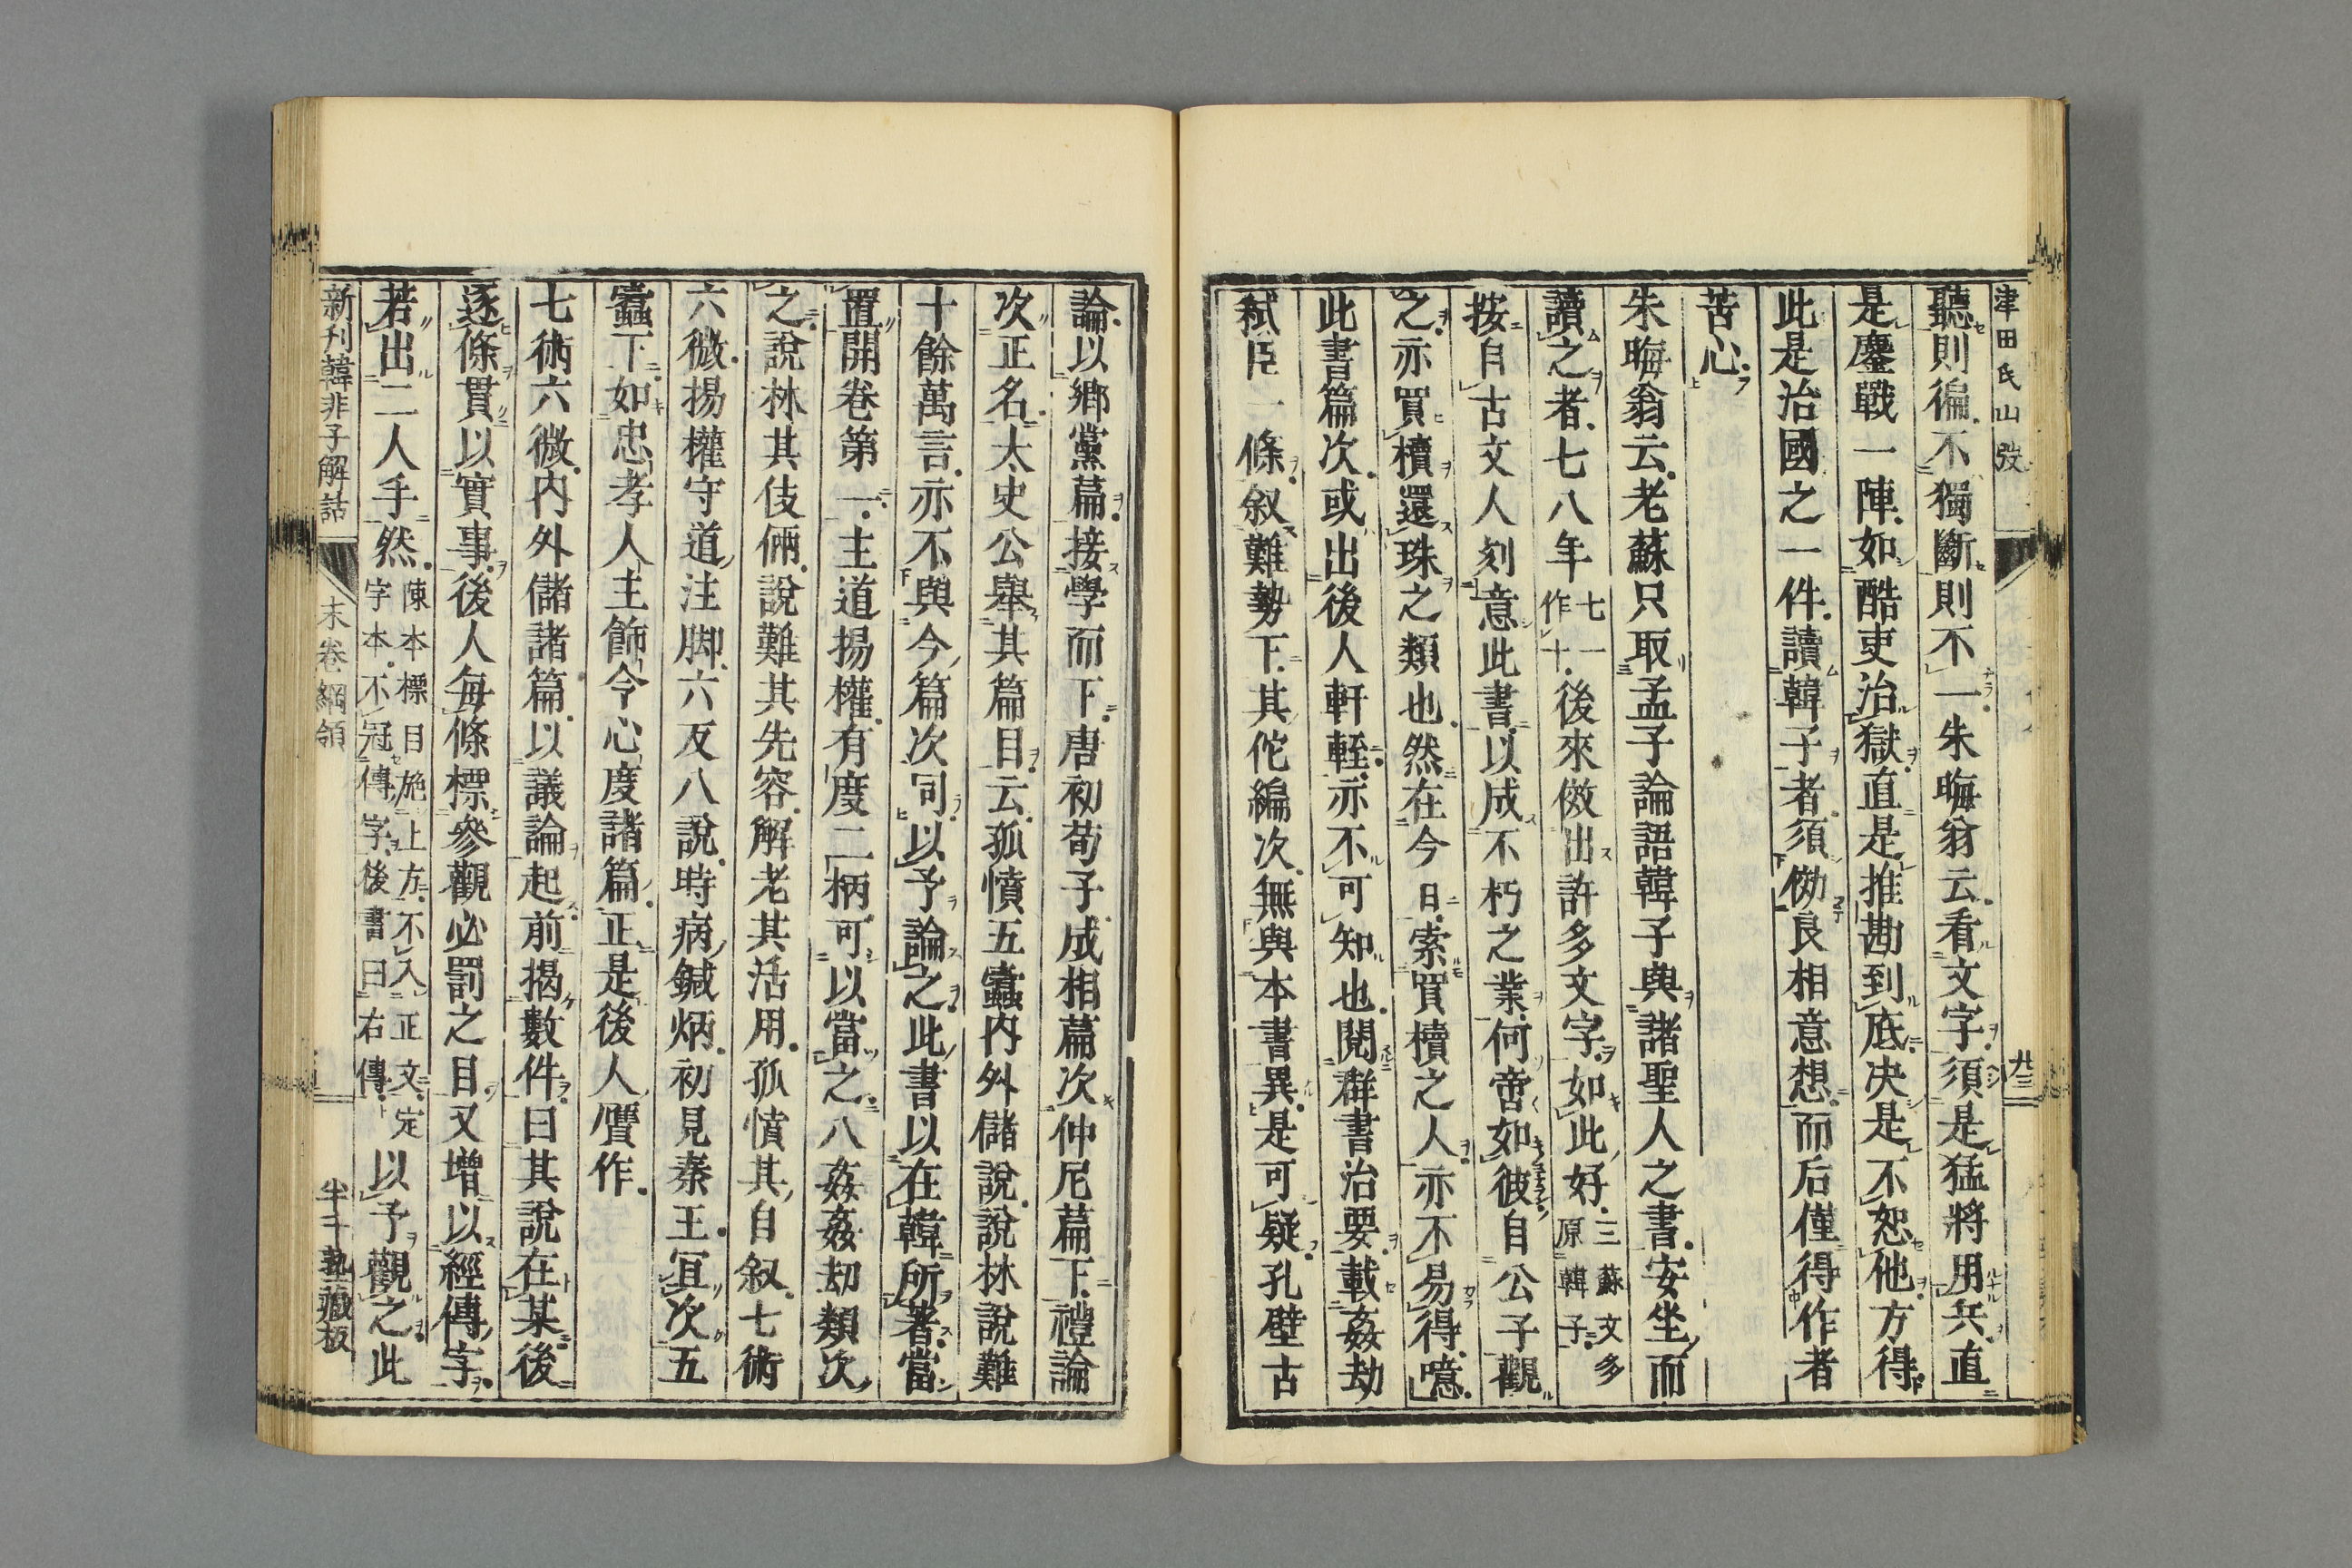 津田氏山發
廿三
聽則偏不獨斷則不一朱晦翁云看文字須是猛將用兵直
是鏖戰一陣如酷吏治獄直是推勘到底决是不恕他方得
此是治國之一件讀韓子者須倣良相意想而后僅得作者
苦心
朱晦翁云老蘇只取孟子論語韓子與諸聖人之書安坐而
讀之者七八年七一作十後來倣出許多文字如此好三蘇文多原韓子
按自古文人刻意此書以成不朽之業何啻如彼自公子觀
之亦買櫝還珠之類也然在今日索買櫝之人亦不易得噫
此書篇次或出後人軒輊亦不可知也閱群書治要載姦劫
弑臣一條叙難勢下其佗編次無與本書異是可疑孔壁古
論以鄉黨篇接學而下唐初荀子成相篇次仲尼篇下禮論
次正名太史公舉其篇目云孤憤五蠹內外儲說說林說難
十餘萬言亦不與今篇次同以予論之此書以在韓所著當
置開卷第一主道揚權有度二柄可以當之八姦姦劫類次
之說林其伎倆說難其先容解老其活用孤憤其自叙七術
六微揚權守道注脚六反八說時病鍼炳初見秦王宜次五
蠹下如忠孝人主飾令心度諸篇正是後人贋作
七術六微內外儲諸篇以議論起前揭數件曰其說在某後
逐條貫以實事後人每條標參觀必罰之目又增以經傳字
若出二人手然陳本標目施上方不入正文定字本不冠傳字後書曰右傳以予觀之此
新刊韓非子解詁
末卷綱領
半千塾藏板